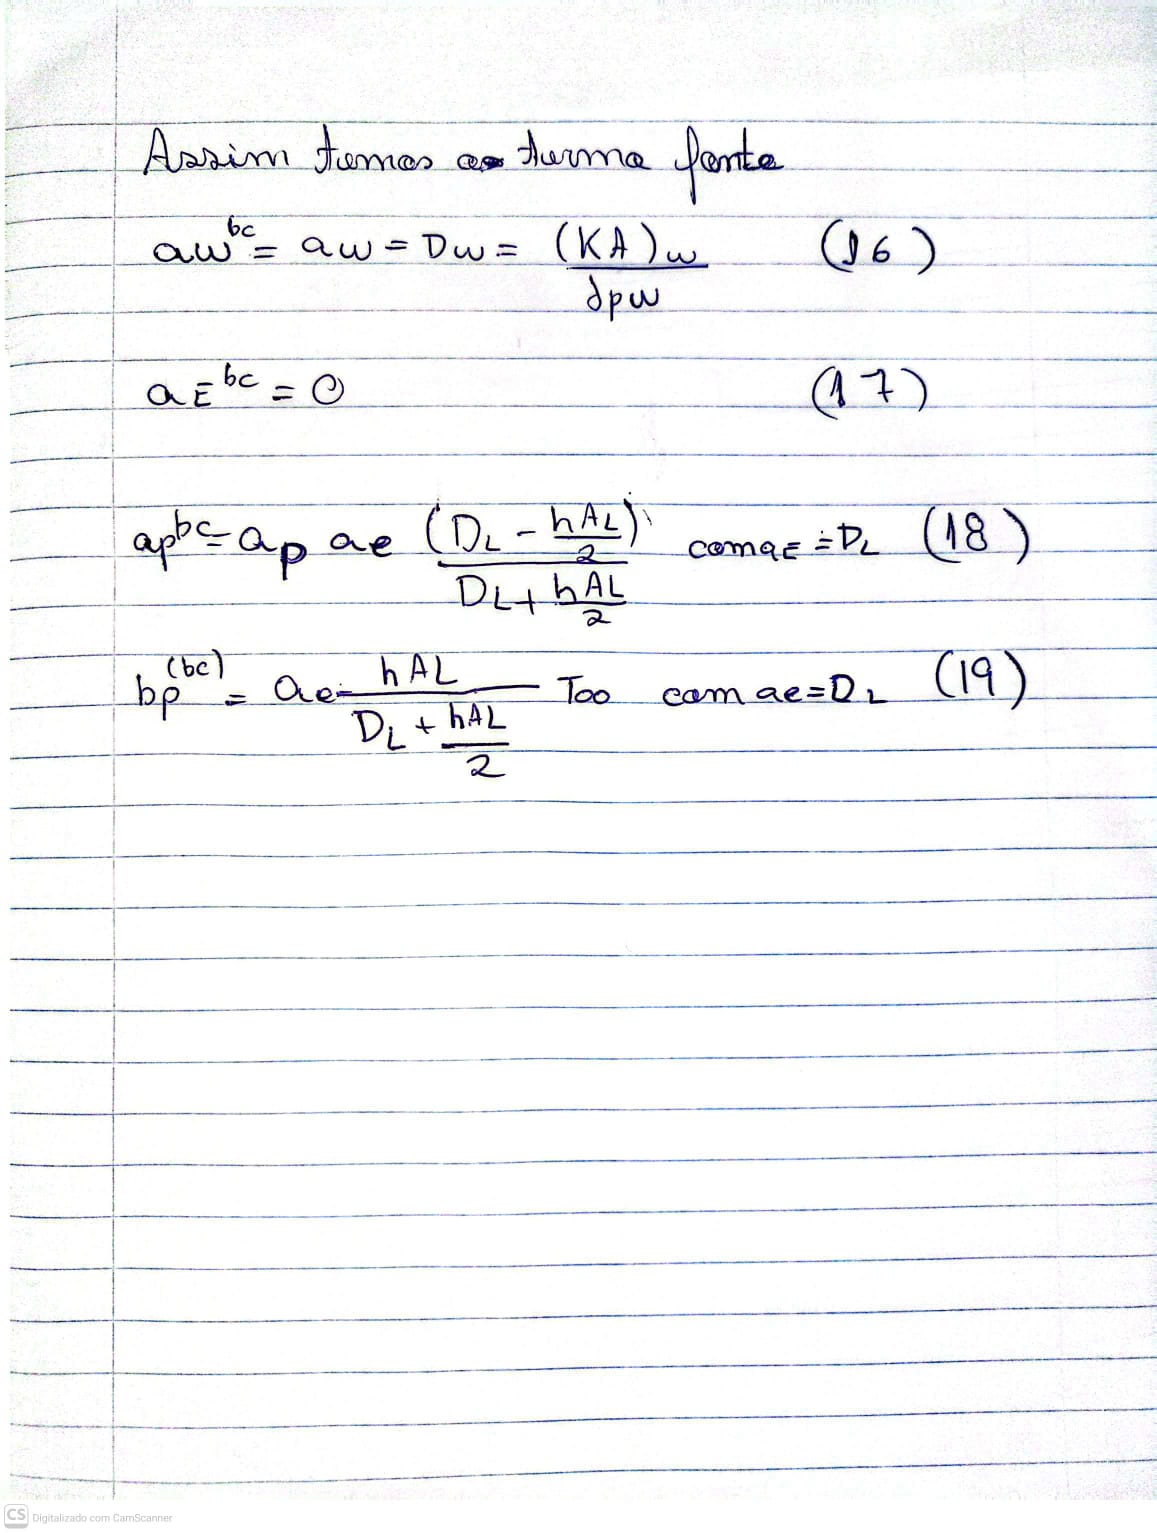 Assim temos ao termo fonte
aw^bc = aw = Dw = (KA)w / δpw (16)
aE^bc = 0 (17)
ap^bc = ap ae (DL - hAL/2) / (DL + hAL/2) com aE = DL (18)
bp^(bc) = ae hAL / (DL + hAL/2) Too com ae = DL (19)
CS Digitalizado com CamScanner